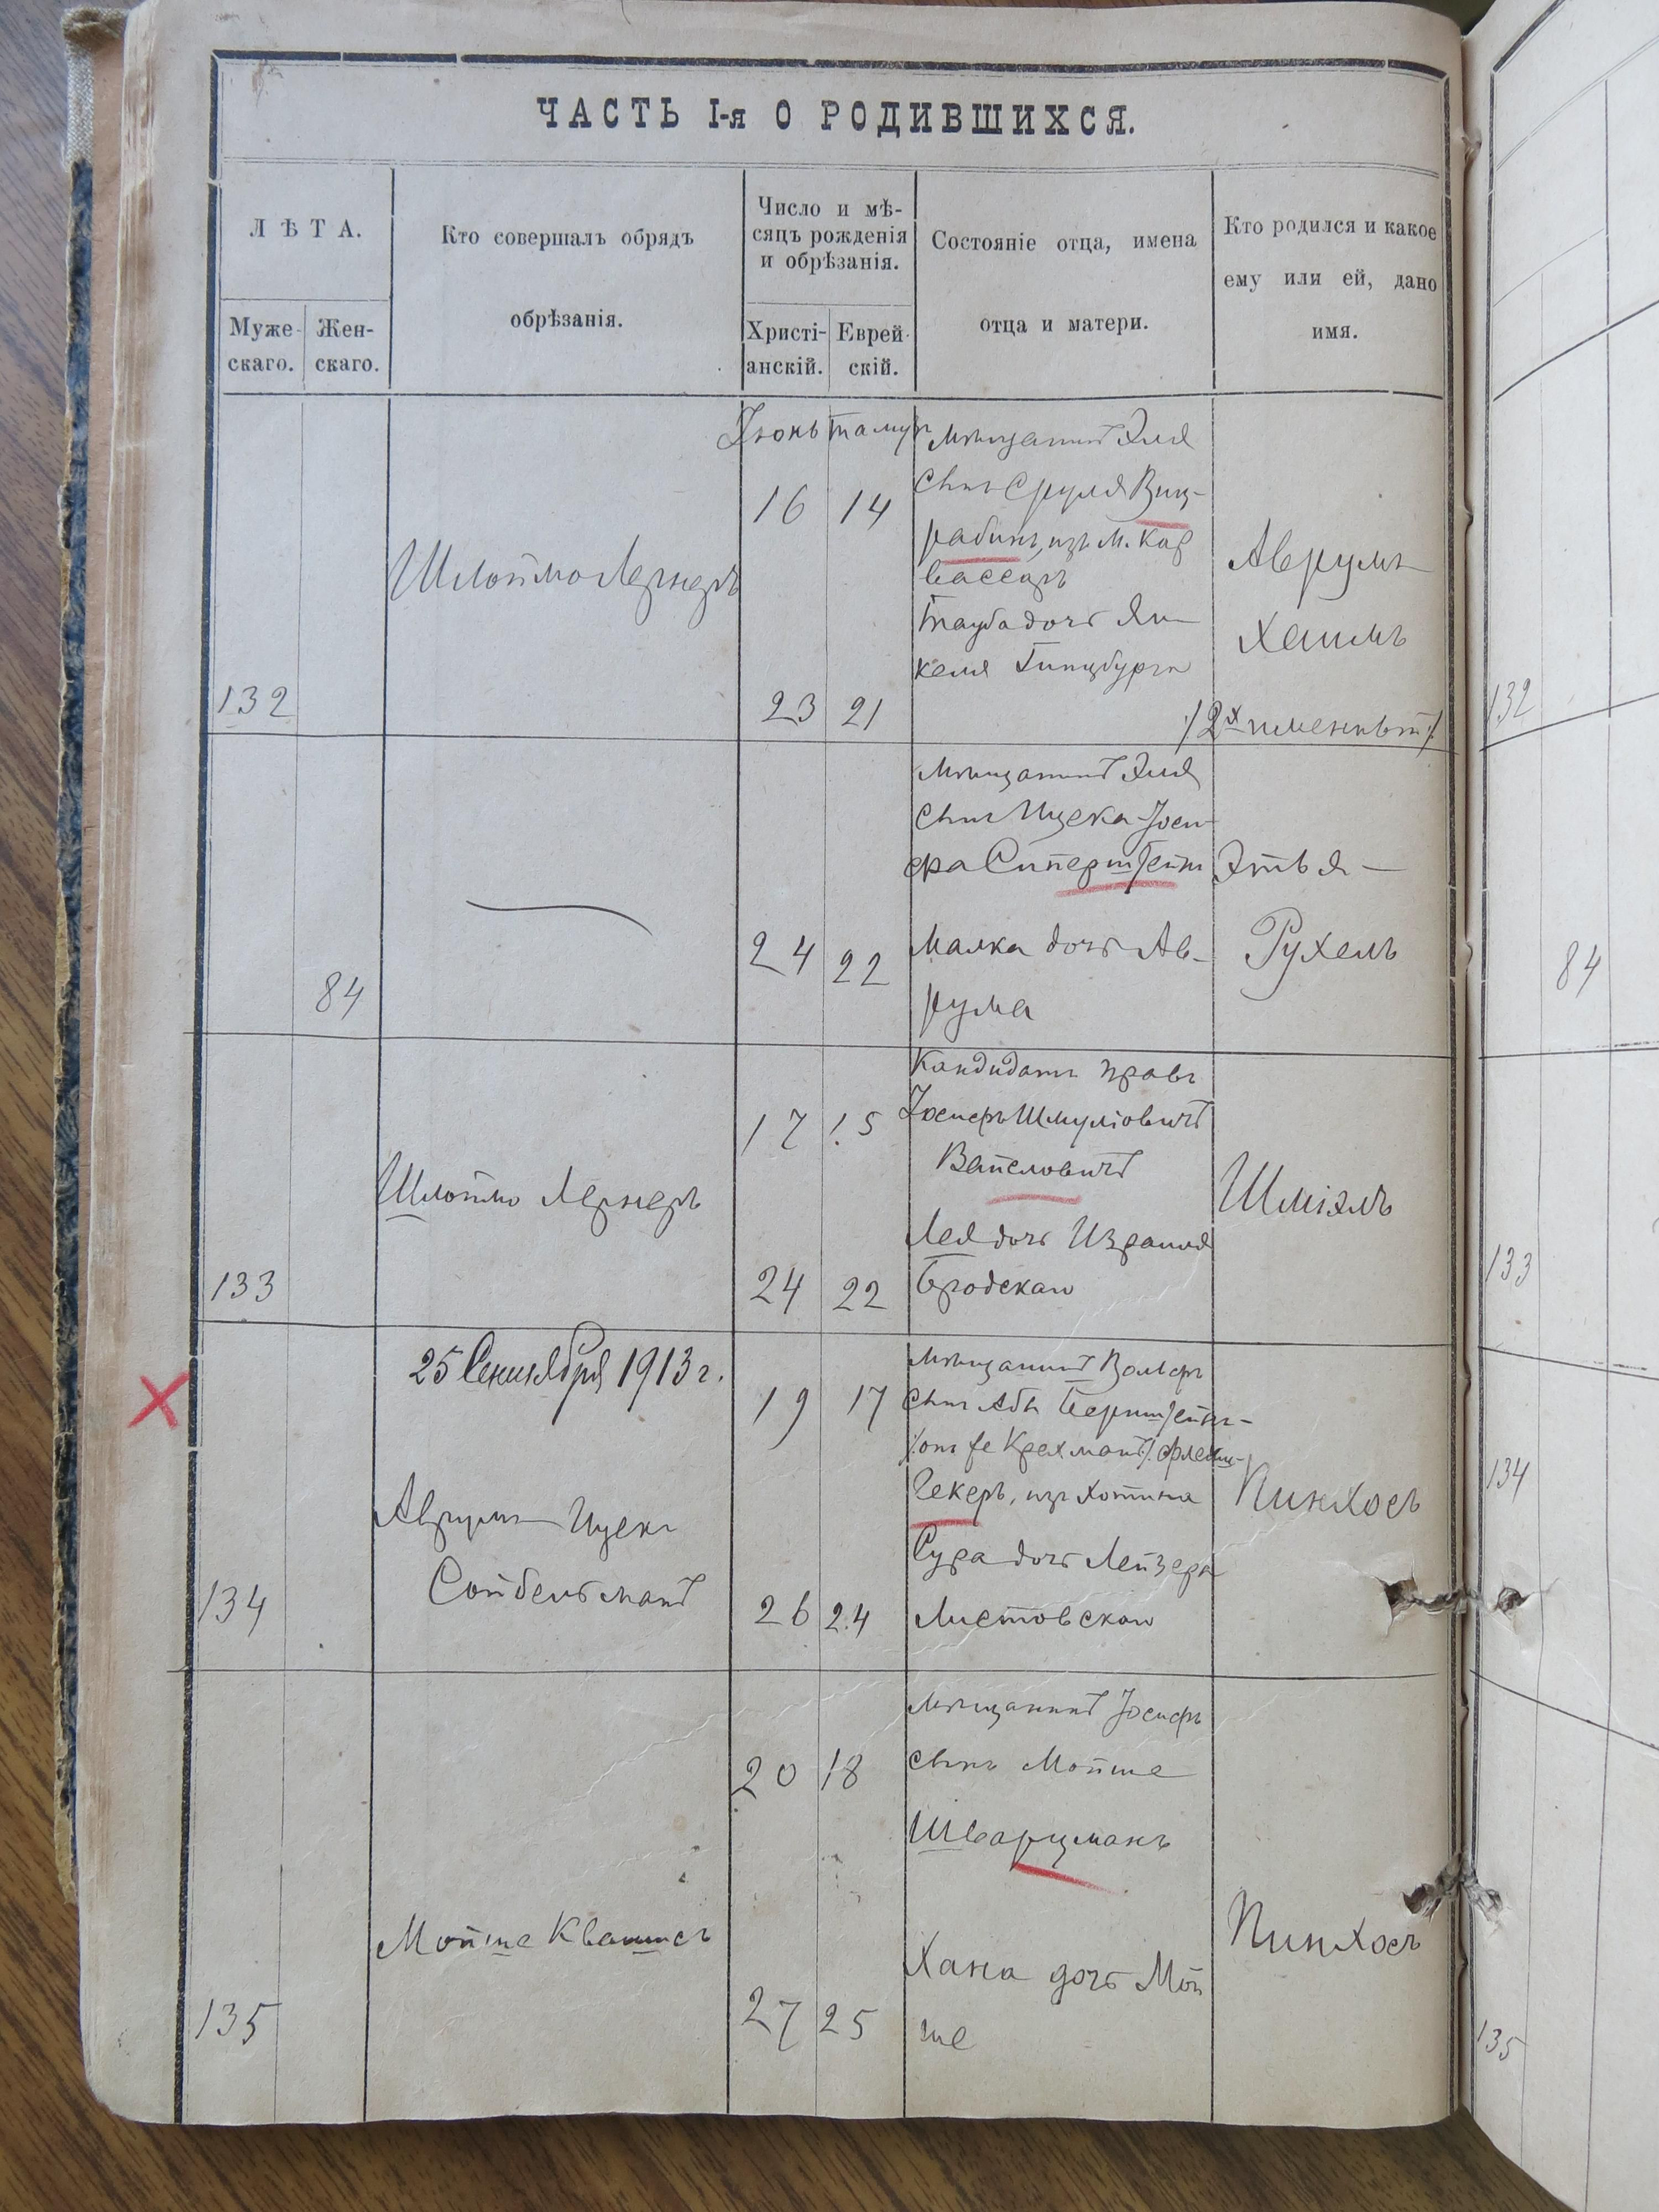 ЧАСТЬ I-я О РОДИВШИХСЯ.
ЛѢТА.
Муже-
скаго.
Жен-
скаго.
Кто совершалъ обрядъ
обрѣзанія.
Число и мѣ-
сяцъ рожденія
и обрѣзанія.
Христі-
анскій.
Еврей-
скій.
Состояніе отца, имена
отца и матери.
Кто родился и какое
ему или ей, дано
имя.
132
Шлоймо Лернеръ
Іюнь
16
23
14
21
мѣщанинъ Эля
сынъ Сруля Виц-
рабинъ, изъ м. Кап
Тауба дочь Ян-
келя Гинцбурга
Аврумъ
Хаимъ
/2х именный/
84
24
22
мѣщанинъ Эля
сынъ Ицека-Іоси-
фа Сиперштейнъ
Малка дочь Ав-
рума
Этья-
Рухель
133
Шлоймо Лернеръ
17
24
15
22
Кандидатъ правъ
Іосифъ Шмуліовичъ
Вайсловичъ
Лея дочь Израиля
Бродская
Шміэлъ
25 Сентября 1913 г.
134
Аврумъ Ицекъ
Сойбельманъ
19
26
17
24
мѣщанинъ Вольфъ
сынъ Абы Бернштейнъ-
Крахманъ
гекеръ, изъ Хотина
Сура дочь Лейзера
Листовская
Пинхосъ
135
Мойше Квашисъ
20
27
18
25
мѣщанинъ Іосифъ
сынъ Мойше
Шварцманъ
Хана дочь Мой
ше
Пинхосъ
132
84
133
134
135